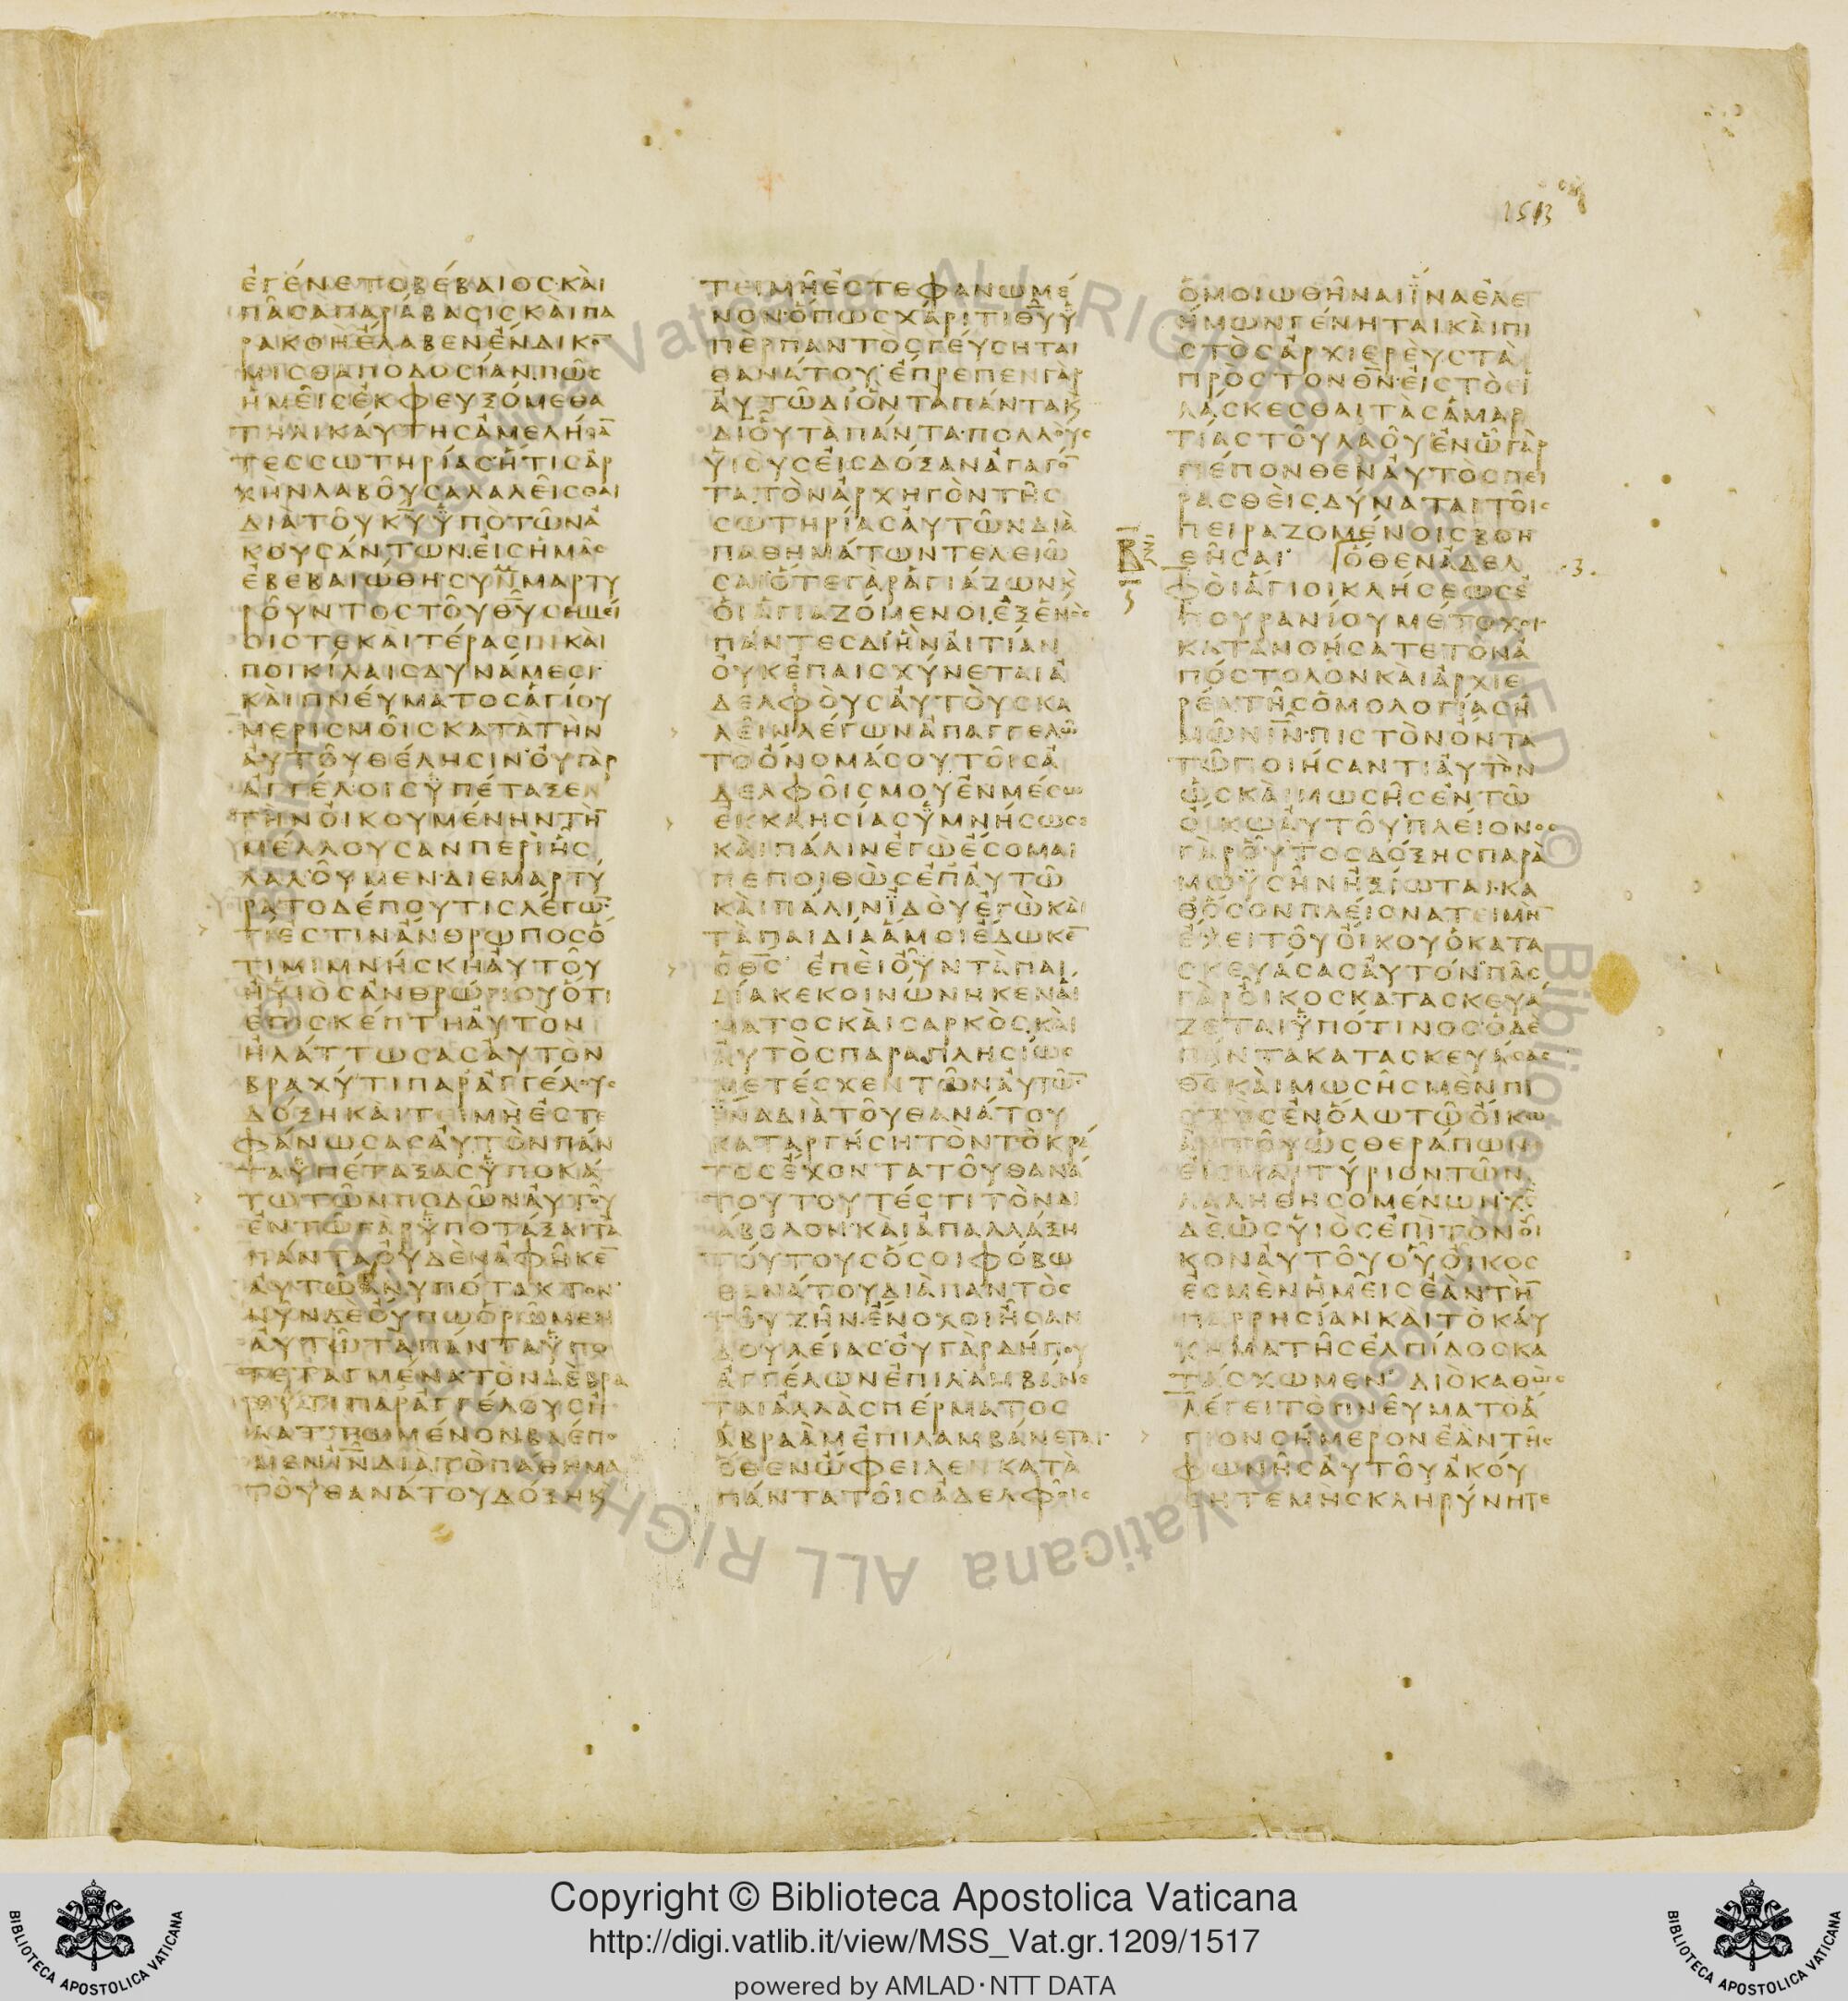 1513
ἐγένετο βέβαιος·καὶ
πᾶσα παράβασις καὶ πα
ρακοὴ ἔλαβεν ἔνδικο̅
μισθαποδοσίαν.πῶς
ἡμεῖς ἐκφευξόμεθα
τηλικαύτης ἀμελήσα̅
τες σωτηρίας·ἥτις ἀρ
χὴν λαβοῦσα λαλεῖσθαι
διὰ τοῦ κ̅υ̅ ὑπὸ τῶν ἀ
κουσάντων.εἰς ἡμᾶς
ἐβεβαιώθη·συνμαρτυ
ροῦντος τοῦ θ̅υ̅ σημεί
οις τε καὶ τέρασιν καὶ
ποικίλαις δυνάμεσι·
καὶ πνεύματος ἁγίου
μερισμοῖς κατὰ τὴν
αὐτοῦ θέλησιν·οὐ γὰρ
ἀγγέλοις ὑπέταξεν
τὴν οἰκουμένην τὴ̅
μέλλουσαν περὶ ἧς
λαλοῦμεν·διεμαρτύ
ρατο δέ που τις λέγω̅
τί ἐστιν ἄνθρωπος ὅ
τι μιμνήσκη αὐτοῦ
ἢ υἱὸς ἀνθρώπου ὅτι
ἐπισκέπτη αὐτὸν
ἠλάττωσας αὐτὸν
βραχύ τι παρ ἀγγέλους
δόξη καὶ τειμῇ ἐστε
φάνωσας αὐτὸν πάν
τα ὑπέταξας ὑποκά
τω τῶν ποδῶν αὐτοῦ
ἐν τῷ γὰρ ὑποτάξαι τὰ
πάντα οὐδὲν ἀφῆκε̅
αὐτῷ ἀνυπότακτον·
νῦν δὲ οὔπω ὁρῶμεν
αὐτῷ τὰ πάντα ὑπο
τεταγμένα·τὸν δὲ βρα
χύ τι παρ ἀγγέλους ἠ
λαττωμένον βλέπο
μεν ι̅ν̅ διὰ τὸ πάθημα
τοῦ θανάτου δόξη κ
τειμῇ ἐστεφανωμέ
νον·ὅπως χάριτι θ̅υ̅ ὑ
πὲρ παντὸς γεύσηται
θανάτου·ἔπρεπεν γὰρ
αὐτῷ δι ὃν τὰ πάντα κ
δι οὗ τὰ πάντα·πολλοὺς
υἱοὺς εἰς δόξαν ἀγαγό̅
τα.τὸν ἀρχηγὸν τῆς
σωτηρίας αὐτῶν διὰ
παθημάτων τελειῶ
σαι·ὅ τε γὰρ ἁγιάζων κ
οἱ ἁγιαζόμενοι.ἐξ ἑνὸς
πάντες δι ἣν αἰτίαν
οὐκ ἐπαισχύνεται ἀ
δελφοὺς αὐτοὺς κα
λεῖν λέγων ἀπαγγελῶ
τὸ ὄνομά σου τοῖς ἀ
δελφοῖς μου ἐν μέσω
ἐκκλησίας ὑμνήσω σε
καὶ πάλιν ἐγὼ ἔσομαι
πεποιθὼς ἐπ αὐτῷ
καὶ πάλιν ἰδοὺ ἐγὼ καὶ
τὰ παιδία ἅ μοι ἔδωκε̅
ὁ θ̅ς̅· ἐπεὶ οὖν τὰ παι
δία κεκοινώνηκεν αἵ
ματος καὶ σαρκὸς.καὶ
αὐτὸς παραπλησίως
μετέσχεν τῶν αὐτῶ̅·
ἵνα διὰ τοῦ θανάτου
καταργήση τὸν τὸ κρά
τος ἔχοντα τοῦ θανά
του τουτέστι τὸν δι
άβολον·καὶ ἀπαλλάξη
τούτους ὅσοι φόβω
θανάτου διὰ παντὸς
τοῦ ζῆν.ἔνοχοι ἦσαν
δουλείας·οὐ γὰρ δήπου
ἀγγέλων ἐπιλαμβάνε
ται ἀλλὰ σπέρματος
ἀβραὰμ ἐπιλαμβάνεται·
ὅθεν ὤφειλεν κατὰ
πάντα τοῖς ἀδελφοῖς
ὁμοιωθῆναι ἵνα ἐλεή
μων γένηται καὶ πι
στὸς ἀρχιερεὺς τὰ
πρὸς τὸν θ̅ν̅·εἰς τὸ εἱ
λάσκεσθαι τὰς ἁμαρ
τίας τοῦ λαοῦ ἐν ᾧ γὰρ
πέπονθεν αὐτὸς πει
ρασθεὶς.δύναται τοῖς
πειραζομένοις βοη
θῆσαι· ὅθεν ἀδελ
φοὶ ἅγιοι κλήσεως ἐ
πουρανίου μέτοχοι·
κατανοήσατε τὸν ἀ
πόστολον καὶ ἀρχιε
ρέα τῆς ὁμολογίας ἡ
μῶν ι̅ν̅·πιστὸν ὄντα
τῷ ποιήσαντι αὐτὸν
ὡς καὶ μωσῆς ἐν τῷ
οἴκω αὐτοῦ·πλείονος
γὰρ οὗτος δόξης παρὰ
μωυσῆν ἠξίωται·κα
θ ὅσον πλείονα τειμὴ̅
ἔχει τοῦ οἴκου ὁ κατα
σκευάσας αὐτόν·πᾶς
γὰρ οἶκος κατασκευά
ζεται ὑπό τινος·ὁ δὲ
πάντα κατασκευάσας·
θ̅ς̅ καὶ μωσῆς μὲν πι
στὸς ἐν ὅλω τῷ οἴκω
αὐτοῦ ὡς θεράπων
εἰς μαρτύριον τῶν
λαληθησομένων·χ̅ς̅
δὲ ὡς υἱὸς ἐπὶ τὸν οἶ
κον αὐτοῦ οὗ οἶκος
ἐσμὲν ἡμεῖς ἐὰν τὴ̅
παρρησίαν καὶ τὸ καύ
χημα τῆς ἐλπίδος κα
τάσχωμεν· διὸ καθὼς
λέγει τὸ πνεῦμα τὸ ἅ
γιον σήμερον ἐὰν τῆς
φωνῆς αὐτοῦ ἀκού
σητε μὴ σκληρύνητε
Copyright © Biblioteca Apostolica Vaticana
http://digi.vatlib.it/view/MSS_Vat.gr.1209/1517
powered by AMLAD·NTT DATA
BIBLIOTECA APOSTOLICA VATICANA
BIBLIOTECA APOSTOLICA VATICANA